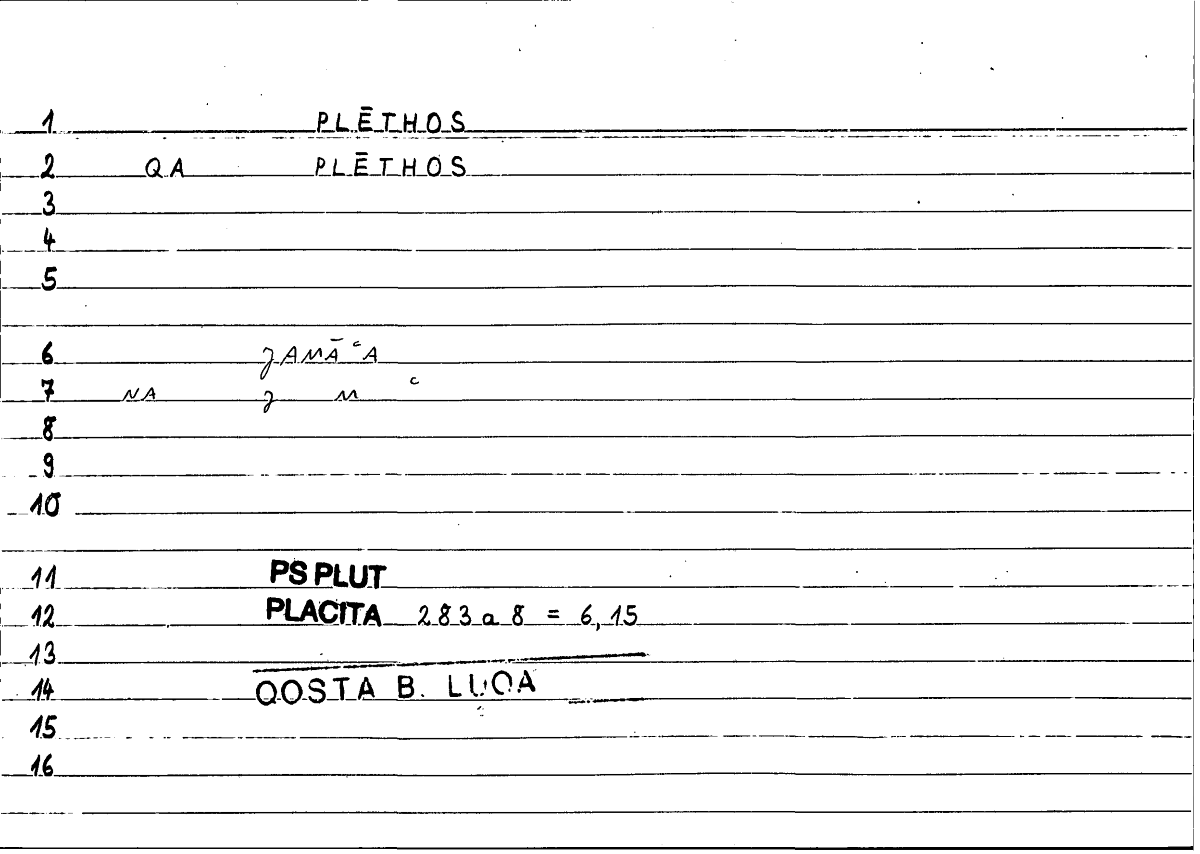 1 PLĒTHOS
2 QA PLĒTHOS
3
4
5
6 ʒAMĀʿA
7 NA ʒ M ʿ
8
9
10
11 PS PLUT
12 PLACITA 283 a 8 = 6,15
13
14 QOSTA B. LUQA
15
16